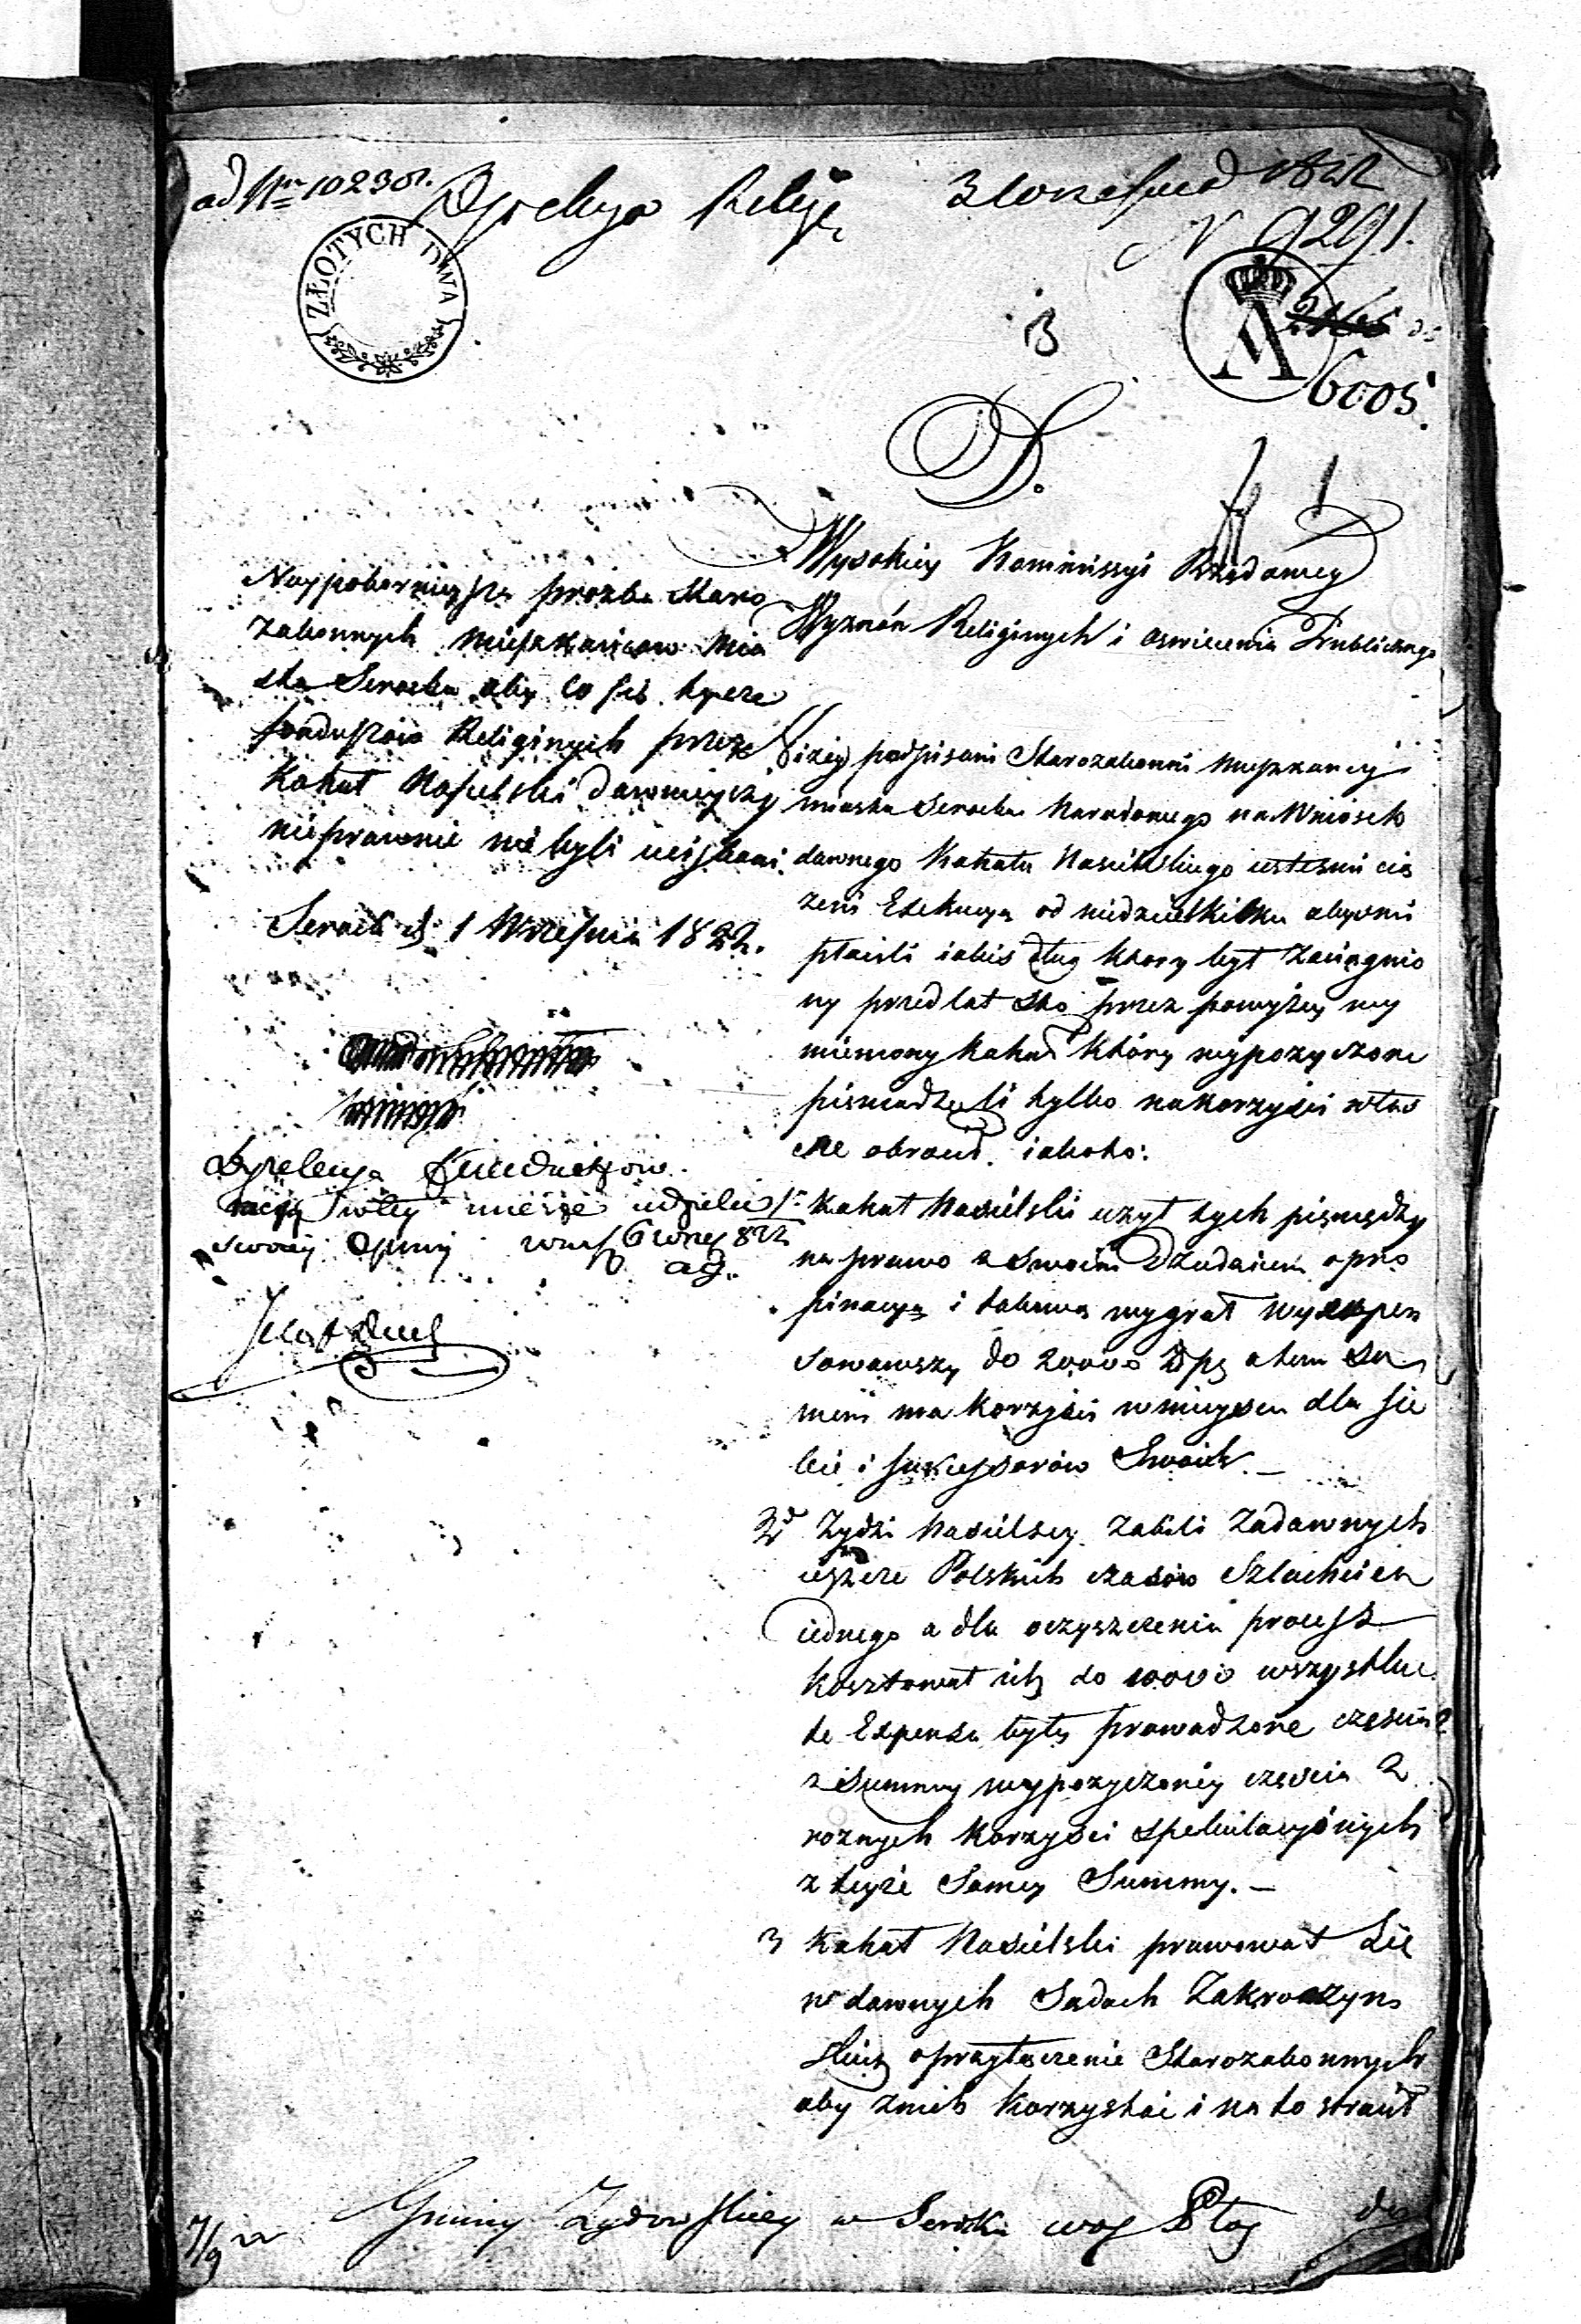 ad Nrm 10230
Dyrekcya Religii
3 1822
N 9291.
ZŁOTYCH DWA
A
6005.
3
D.
Wysokiey Kommissyi Rządowey
Wyznań Religinych i oswiecenia Publicznego
Naypokornieysza prozba Staro
zakonnych mieszkańcow mia
sta Serocka aby co się tycze
funduszow Religinych przez
Kahał Nasielski dawnieyszy
nieprawnie nie byli uciskani.
Serock d. 1 Wrzesnia 1822.
Dyrekcya Funduszow
swoiey Opinij
Niżey podpisani Starozakonni mieszkancy
miasta Serocka Narodowego na Wniosek
dawnego Kahału Nasielskiego iestesmi cią
zeni Exekucyą od niedziel kilku abysmi
płacili iakis dług ktory był zaciągnio
ny przed lat sto przez powyżey wy
mieniony kahał który wypozyczone
pieniadze li tylko na korzysci włas
ne obrocił. iakoto:
1o Kahał Nasielski uzył tych pieniędzy
na prawo z swoim Dziedzicem o pro
pinacyą i takową wygrał wyexpen
sowawszy do 20000 Złp a tem sa
mem ma korzysci w mieyscu dla sie
bie i sukcessorów Swoich. —
2o Zydzi Nasielscy zabili za dawnych
ieszcze Polskich czasow Szlachcica
iednego a dla oczyszczenia process
kosztował ich do 10000 wszystkie
te Expensa były prowadzone częscią
z Summy wypozyczoney częscią z
roznych korzysci spekulacyinych
z teyże Samey Summy. —
3 Kahał Nasielski prawował Sie
w dawnych Sądach Zakroczyms
kich o przyłączenie Starozakonnych
aby z nich korzystać i na to stracił
7/9 22
Gminy Zydowskiey w Serocku woj Płoc
do